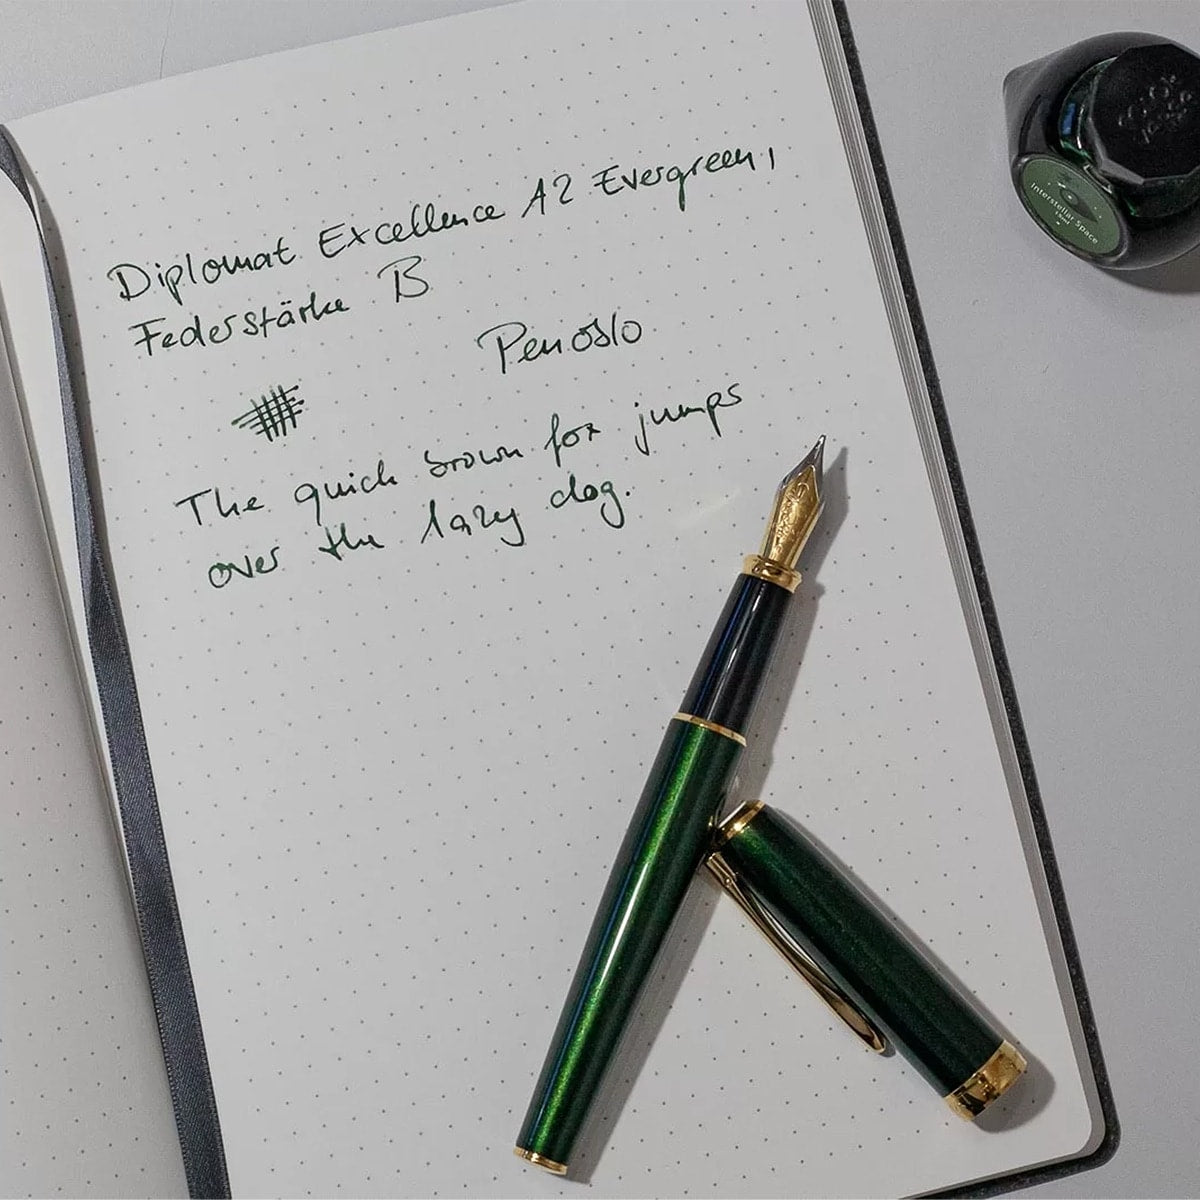 Diplomat Excellence A2 Evergreen,
Federstärke B
Penoblo
The quick brown fox jumps
over the lazy dog.
Interstellar Space